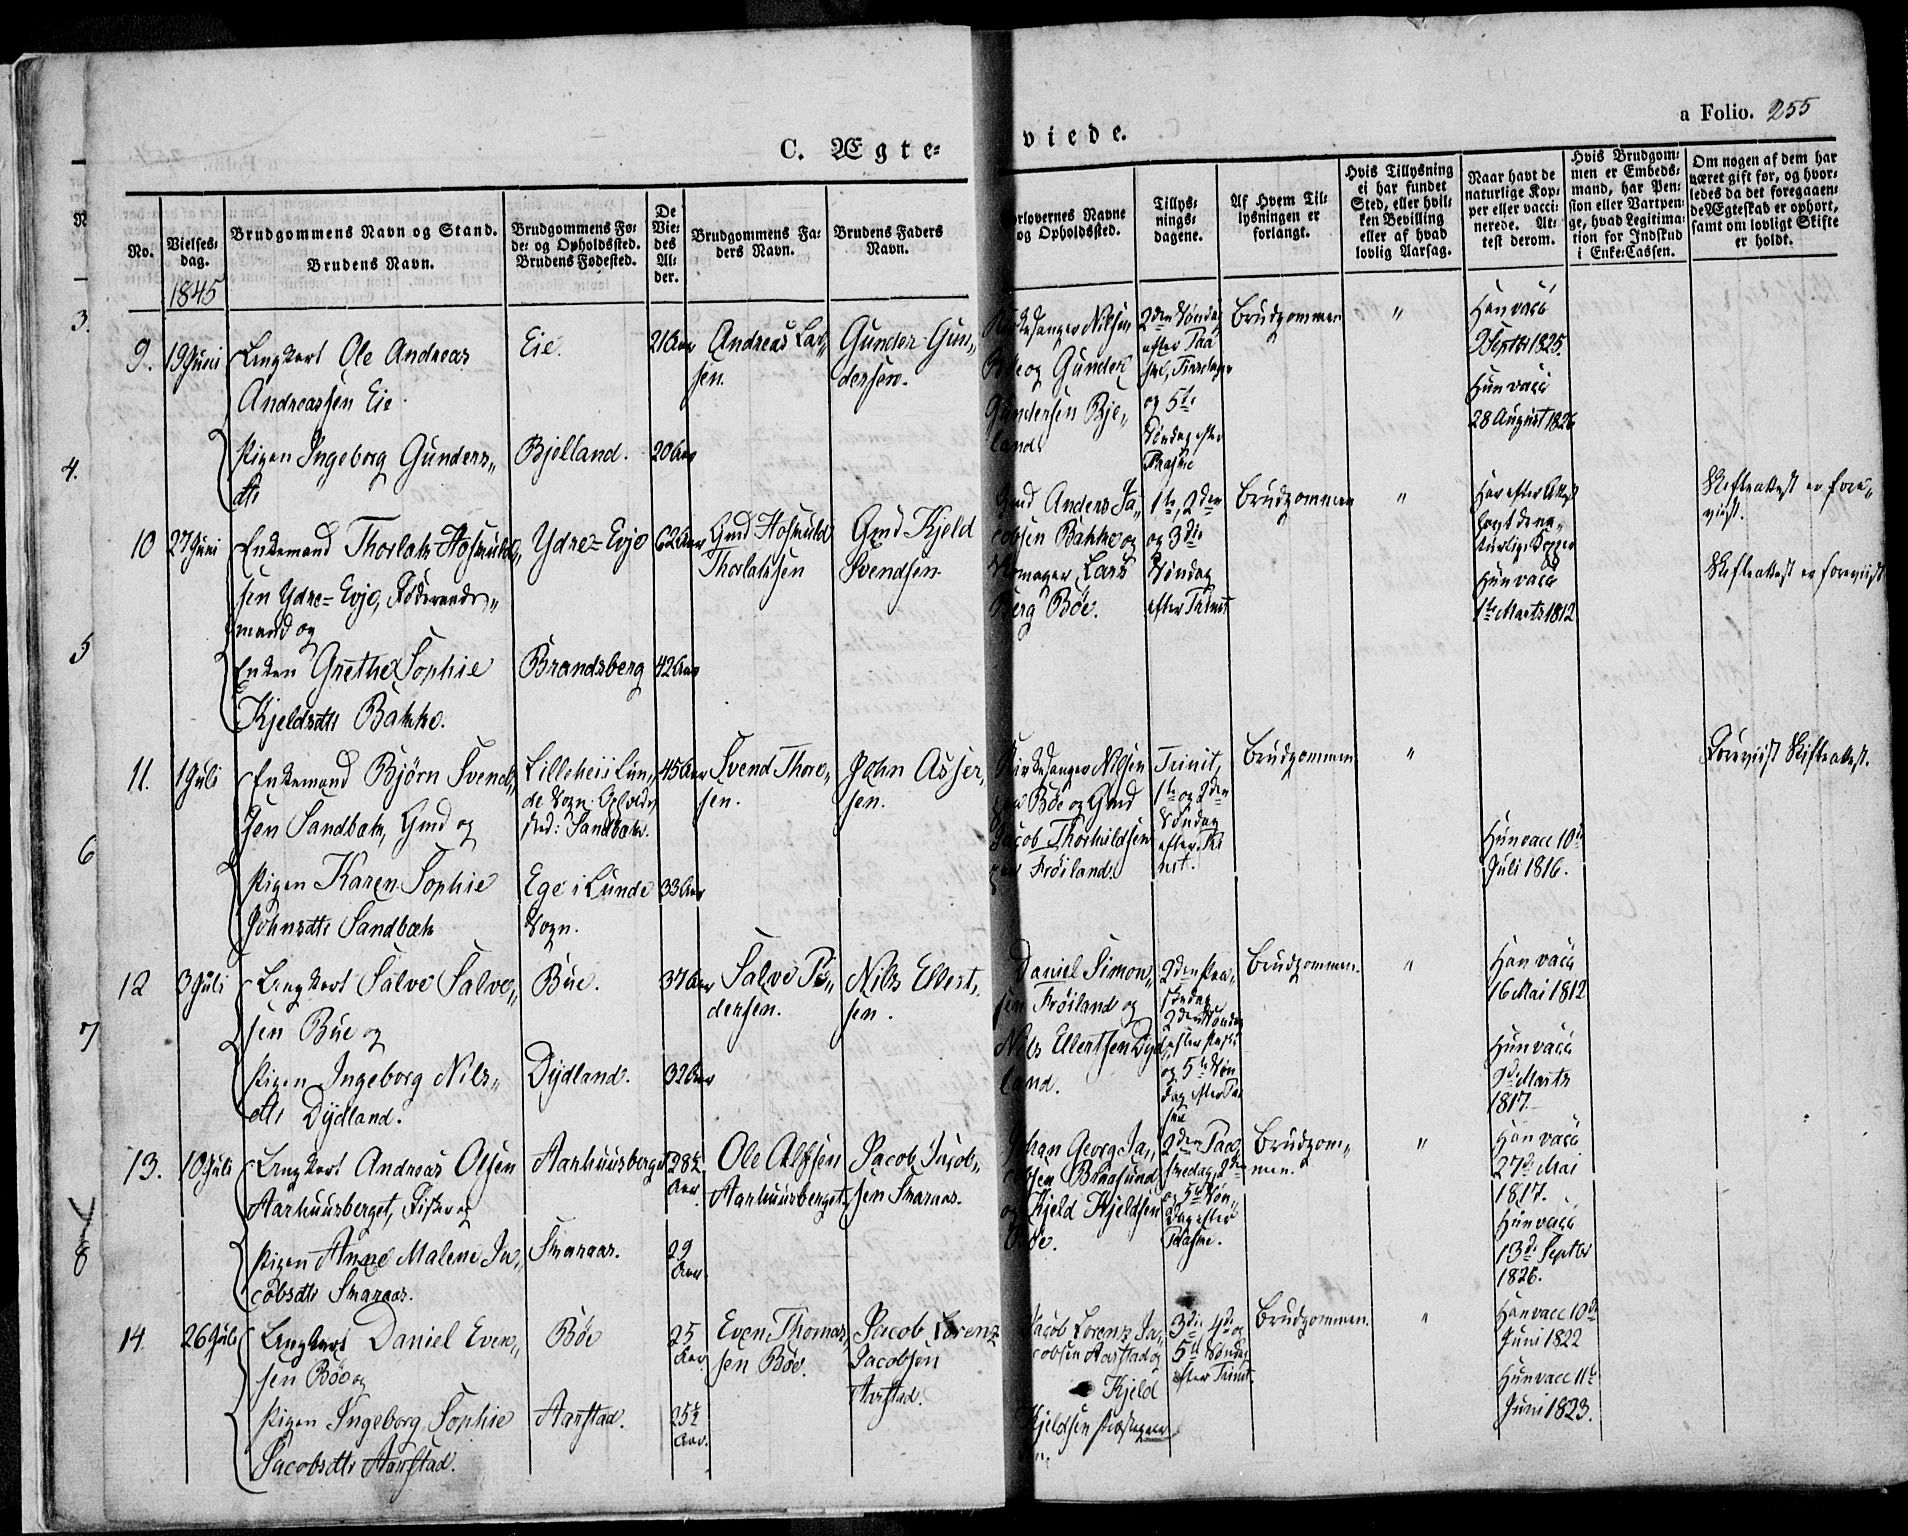 a Folio. 255
C. Ægte-
viede.
No.
Vielses-
dag.
Brudgommens Navn og Stand.
Brudens Navn.
Brudgommens Fø-
de- og Opholdssted.
Brudens Fødested.
De
Vie-
des
Al-
der.
Brudgommens Fa-
ders Navn.
Brudens Faders
Navn.
orlovernes Navne
og Opholdssted.
Tillys-
nings-
dagene.
Af Hvem Til-
lysningen er
forlangt.
Hvis Tillysning
ei har fundet
Sted, eller hvil-
ken Bevilling
eller af hvad
lovlig Aarsag.
Naar havt de
naturlige Kop-
per eller vacci-
nerede. At-
test derom.
Hvis Brudgom-
men er Embeds-
mand, har Pen-
sion eller Vartpen-
ge, hvad Legitima-
tion for Indskud
i Enke-Cassen.
Om nogen af dem har
været gift før, og hvor-
ledes da det foregaaen-
de Ægteskab er ophørt,
samt om lovligt Skifte
er holdt.
1845
3.
4.
5
6
7
8
9. 19 Juni
Ungkarl Ole Andreas
Andreassen Eie.
Pigen Ingeborg Gunders-
dtr
Eie.
Bjelland.
21 Aar
20 Aar
Andreas Lar-
sen.
Gunder Gun-
dersen.
Kirkesanger Nilsen
Bøe og Gunder
Gundersen Bje-
land.
2den Søndag
efter Paa
og 5te
Søndag efter
Paaske
Brudgommen
"
Han vacc
Septbr 1825.
Hun vacc
28 August 1826
10 27 Juni
Enkemand Thorlak Hosmuld-
sen Ydre-Evje, Føderaads-
mand og
Enken Grethe Sophie
Kjeldsdtr Bakke.
Ydre-Evje
Brandsberg
62 Aar
42 Aar
Gmd Hosmuld
Thorlaksen
Gmd Kjeld
Svendsen
Gmd Anders Ja-
cobsen Bakke og
Skomager Lars
Berg Bøe.
1te, 2den
og 3die
Søndag
efter Trinit
Brudgommen
"
Har efter Attest
havt de na-
turlige Kopper
Hun vacc
1te Marts 1812
Skifteattest er fore-
viist.
Skifteattest er foreviist
11. 1 Juli
Enkemand Bjørn Svend-
sen Sandbæk, Gmd og
Pigen Karen Sophie
Johnsdtr Sandbæk
Lillehei i Lun-
de Sogn. Opholds-
sted: Sandbæk.
Ege i Lunde
Sogn.
45 Aar
33 Aar
Svend Thore-
sen.
John Asser-
sen.
Kirkesanger Nilsen
Bøe og Gmd
Jacob Thorkildsen
Frøiland.
Trinit,
1te og 2den
Søndag
efter Tri
nit.
Brudgommen
"
Hun vacc 10de
Juli 1816.
Foreviist Skifteattest.
12 3 Juli
Ungkarl Salve Salve-
sen Bue og
Pigen Ingeborg Nils-
dtr Dydland.
Bue.
Dydland.
37 Aar
32 Aar
Salve Pe-
dersen.
Nils Ellert-
sen.
Daniel Simon-
sen Frøiland og
Nils Ellertsen Dyd-
land.
2den Paa-
skedag
2den Søndag
efter Paaske
og 5te Søn
dag efter Paa
ske
Brudgommen.
"
Han vacc
16 Mai 1812
Hun vacc
9de Marts
1817.
13. 10 Juli
Ungkarl Andreas Olsen
Aarhuusberget, Fisker og
Pigen Anne Malene Ja-
cobsdtr Smaraas.
Aarhuusberget
Smaraas.
28½
Aar
29
Aar.
Ole Alfsen
Aarhuusberget
Jacob Jacob-
sen Smaraas.
Johan Georg Ja-
cobsen Braasund
og Kjeld Kjeldsen
Bøe.
2den Paa-
skedag, 2den
og 5te Søn-
dag efter
Paaske.
Brudgom-
men.
"
Han vacc
27de Mai
1817.
Hun vacc
13de Septbr
1826.
14. 26 Juli
Ungkarl Daniel Even-
sen Bøe og
Pigen Ingeborg Sophie
Jacobsdtr Aarstad.
Bøe
Aarstad.
25
Aar.
25½
Aar.
Even Thomas-
sen Bøe.
Jacob Lorenz
Jacobsen
Aarstad.
Jacob Lorenz Ja-
cobsen Aarstad og
Kjeld
Kjeldsen
3die 4de og
5te Søndag
efter Trinit.
Brudgommen.
"
Han vacc 10de
Juni 1822
Hun vacc 11te
Juni 1823.